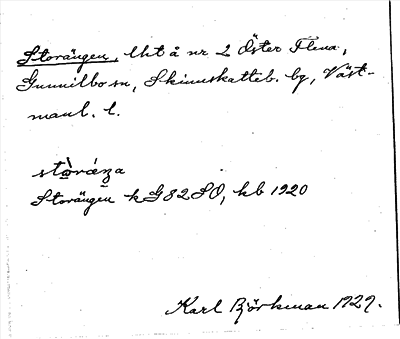 Storängen, lht å nr 2 Öster Flena,
Gunnilbo sn, Skinnskatteb. bg, Väst-
manl. l.
Storängen k G82SO, hb 1920
Karl Björkman 1929.